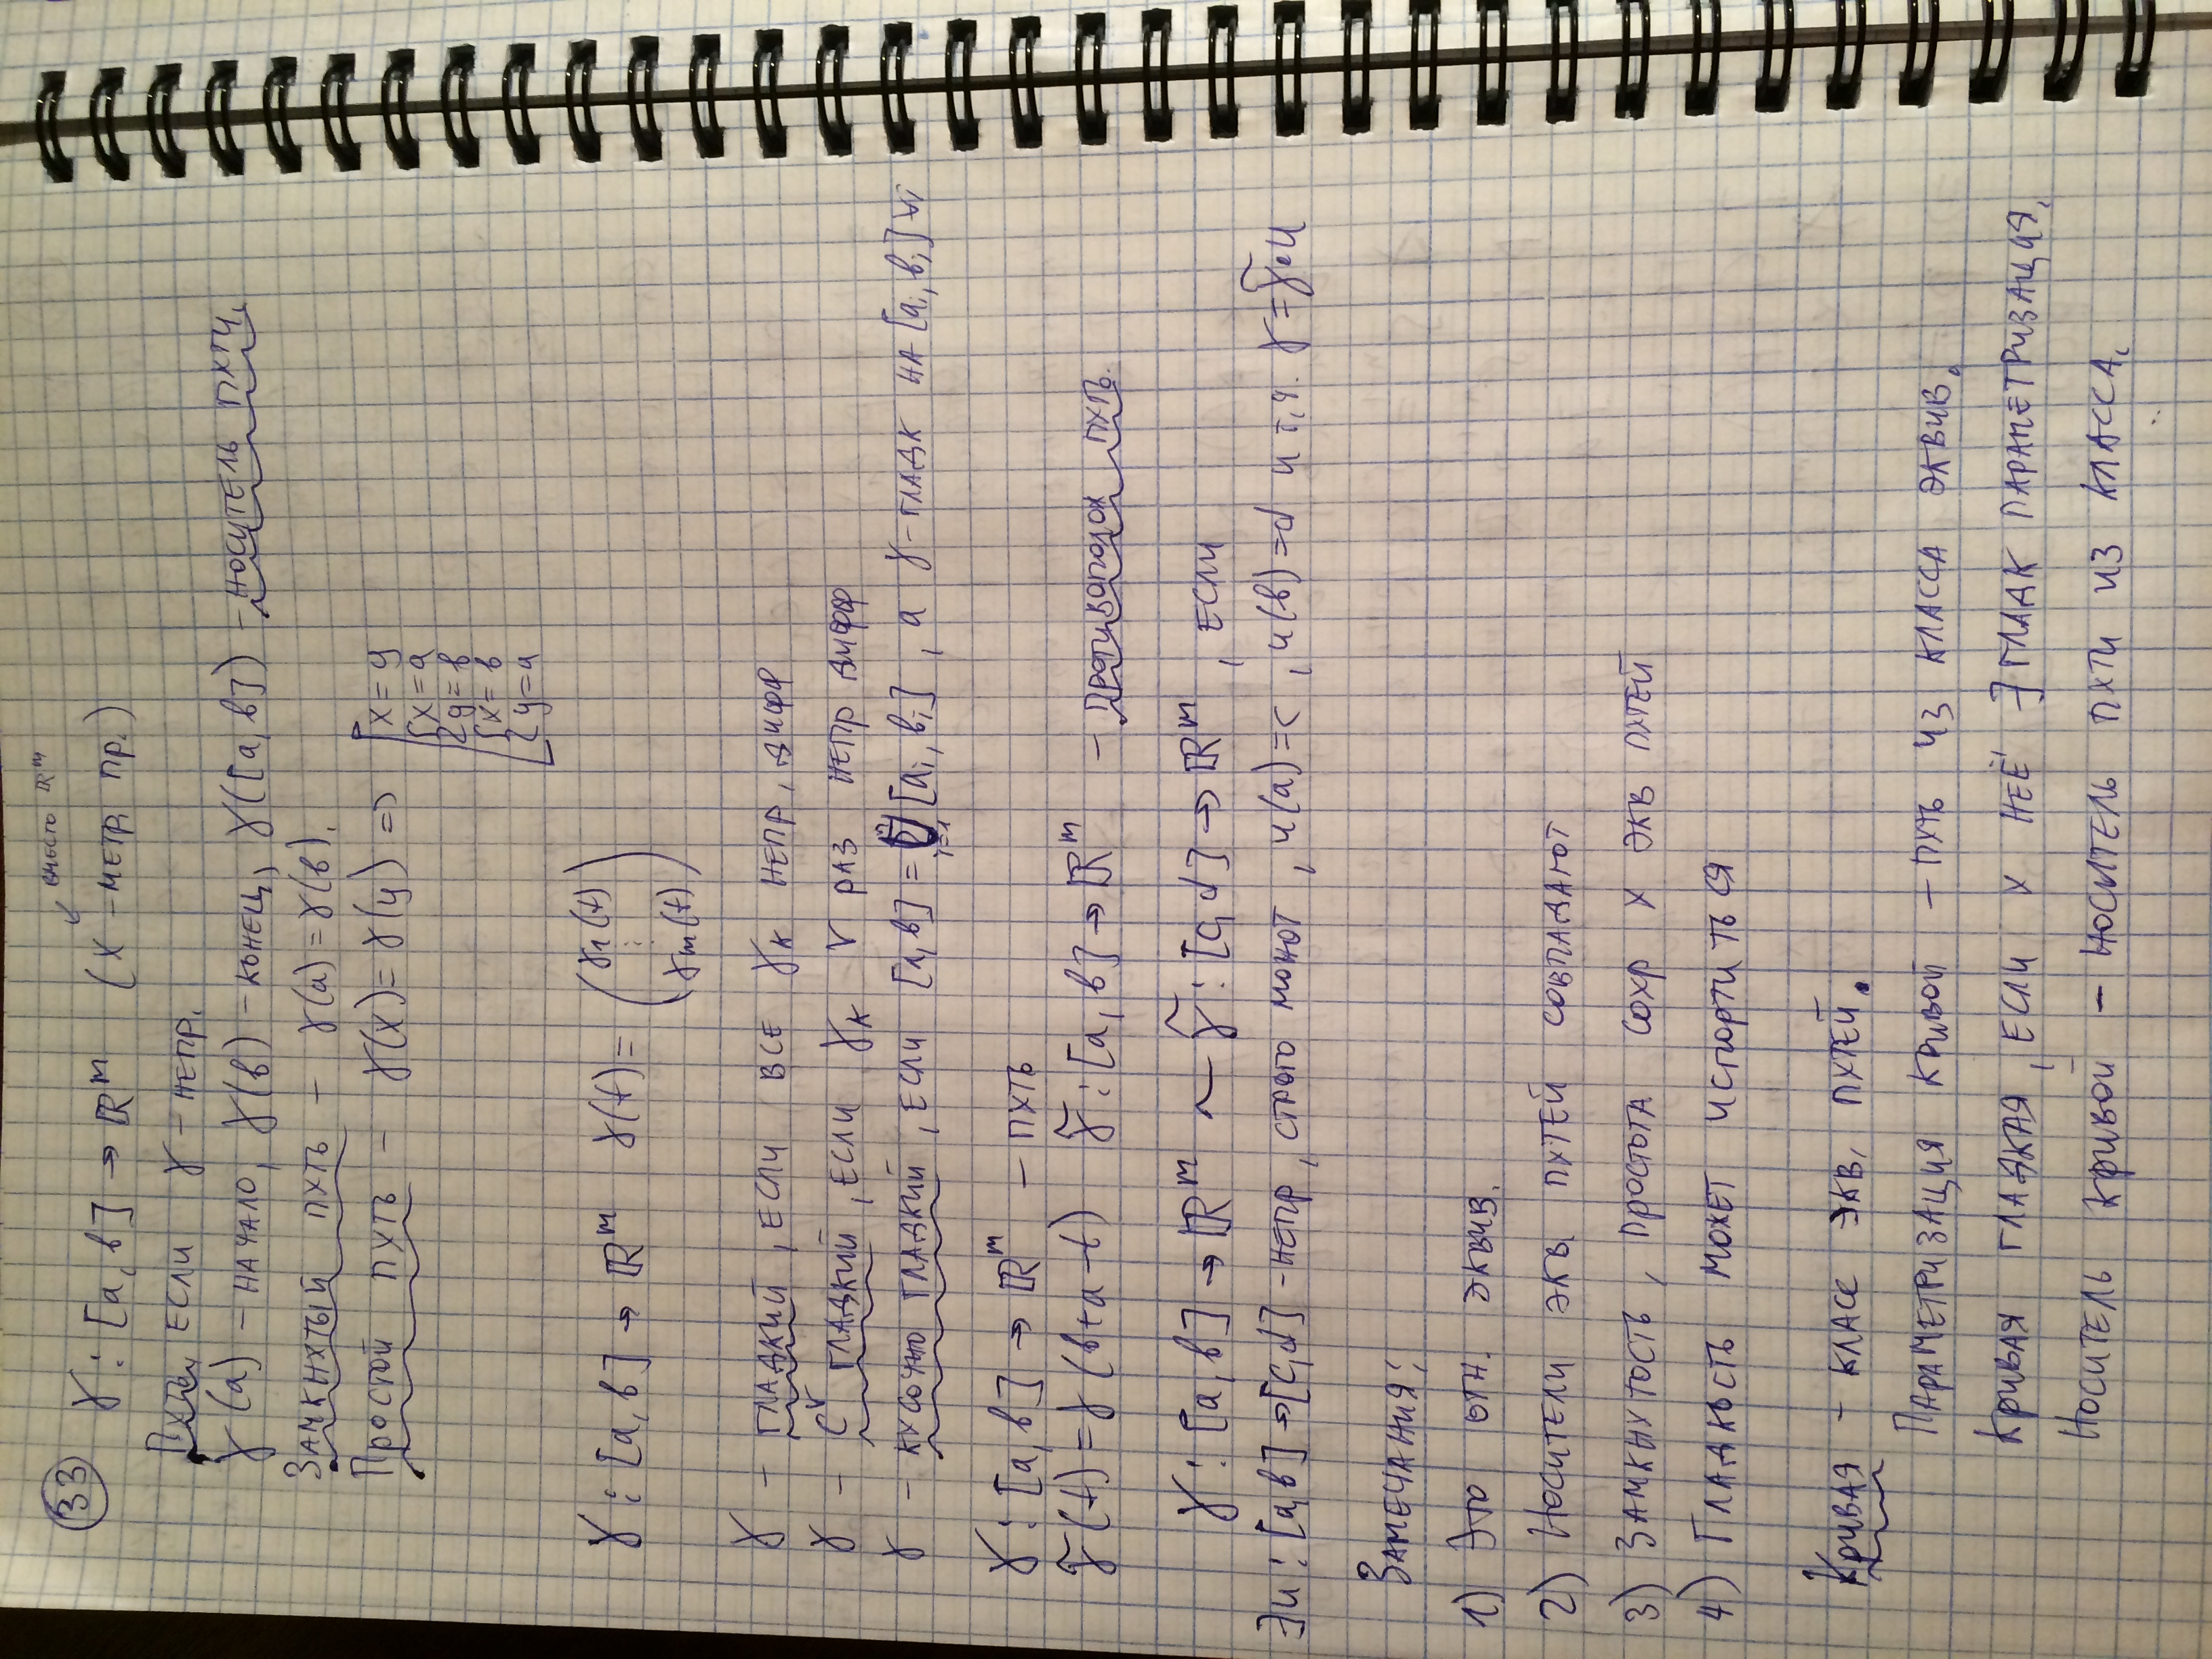 33
вместо ℝ^m
γ : [a, b] → ℝ^m (X – метр. пр.)
Путь, если γ – непр.
γ(a) – начало, γ(b) – конец, γ([a, b]) – носитель пути.
Замкнутый путь – γ(a) = γ(b).
Простой путь – γ(x) = γ(y) => [ x = y
{ x = a
{ y = b
{ x = b
{ y = a
γ : [a, b] → ℝ^m γ(t) = ( γ₁(t)
⋮
γm(t) )
γ – гладкий, если все γk непр. дифф
γ – C^r гладкий, если γk r раз непр дифф
γ – кусочно гладкий, если [a, b] = ⋃ i=1 [ai, bi], а γ – гладк на [ai, bi] ∀i
γ : [a, b] → ℝ^m – путь
γ̃(t) = γ(b+a–t) γ̃ : [a, b] → ℝ^m – противополож путь.
γ : [a, b] → ℝ^m ~ γ̃ : [c, d] → ℝ^m, если
∃u : [a, b] → [c, d] – непр, строго монот, u(a) = c, u(b) = d и т.ч. γ = γ̃∘u
Замечания:
1) Это отн. эквив.
2) Носители экв. путей совпадают
3) Замкнутость, простота сохр у экв путей
4) Гладкость может испортиться
Кривая – класс экв. путей.
Параметризация кривой – путь из класса эквив.
Кривая гладкая, если у неё ∃ гладк параметризация.
Носитель кривой – носитель пути из класса.